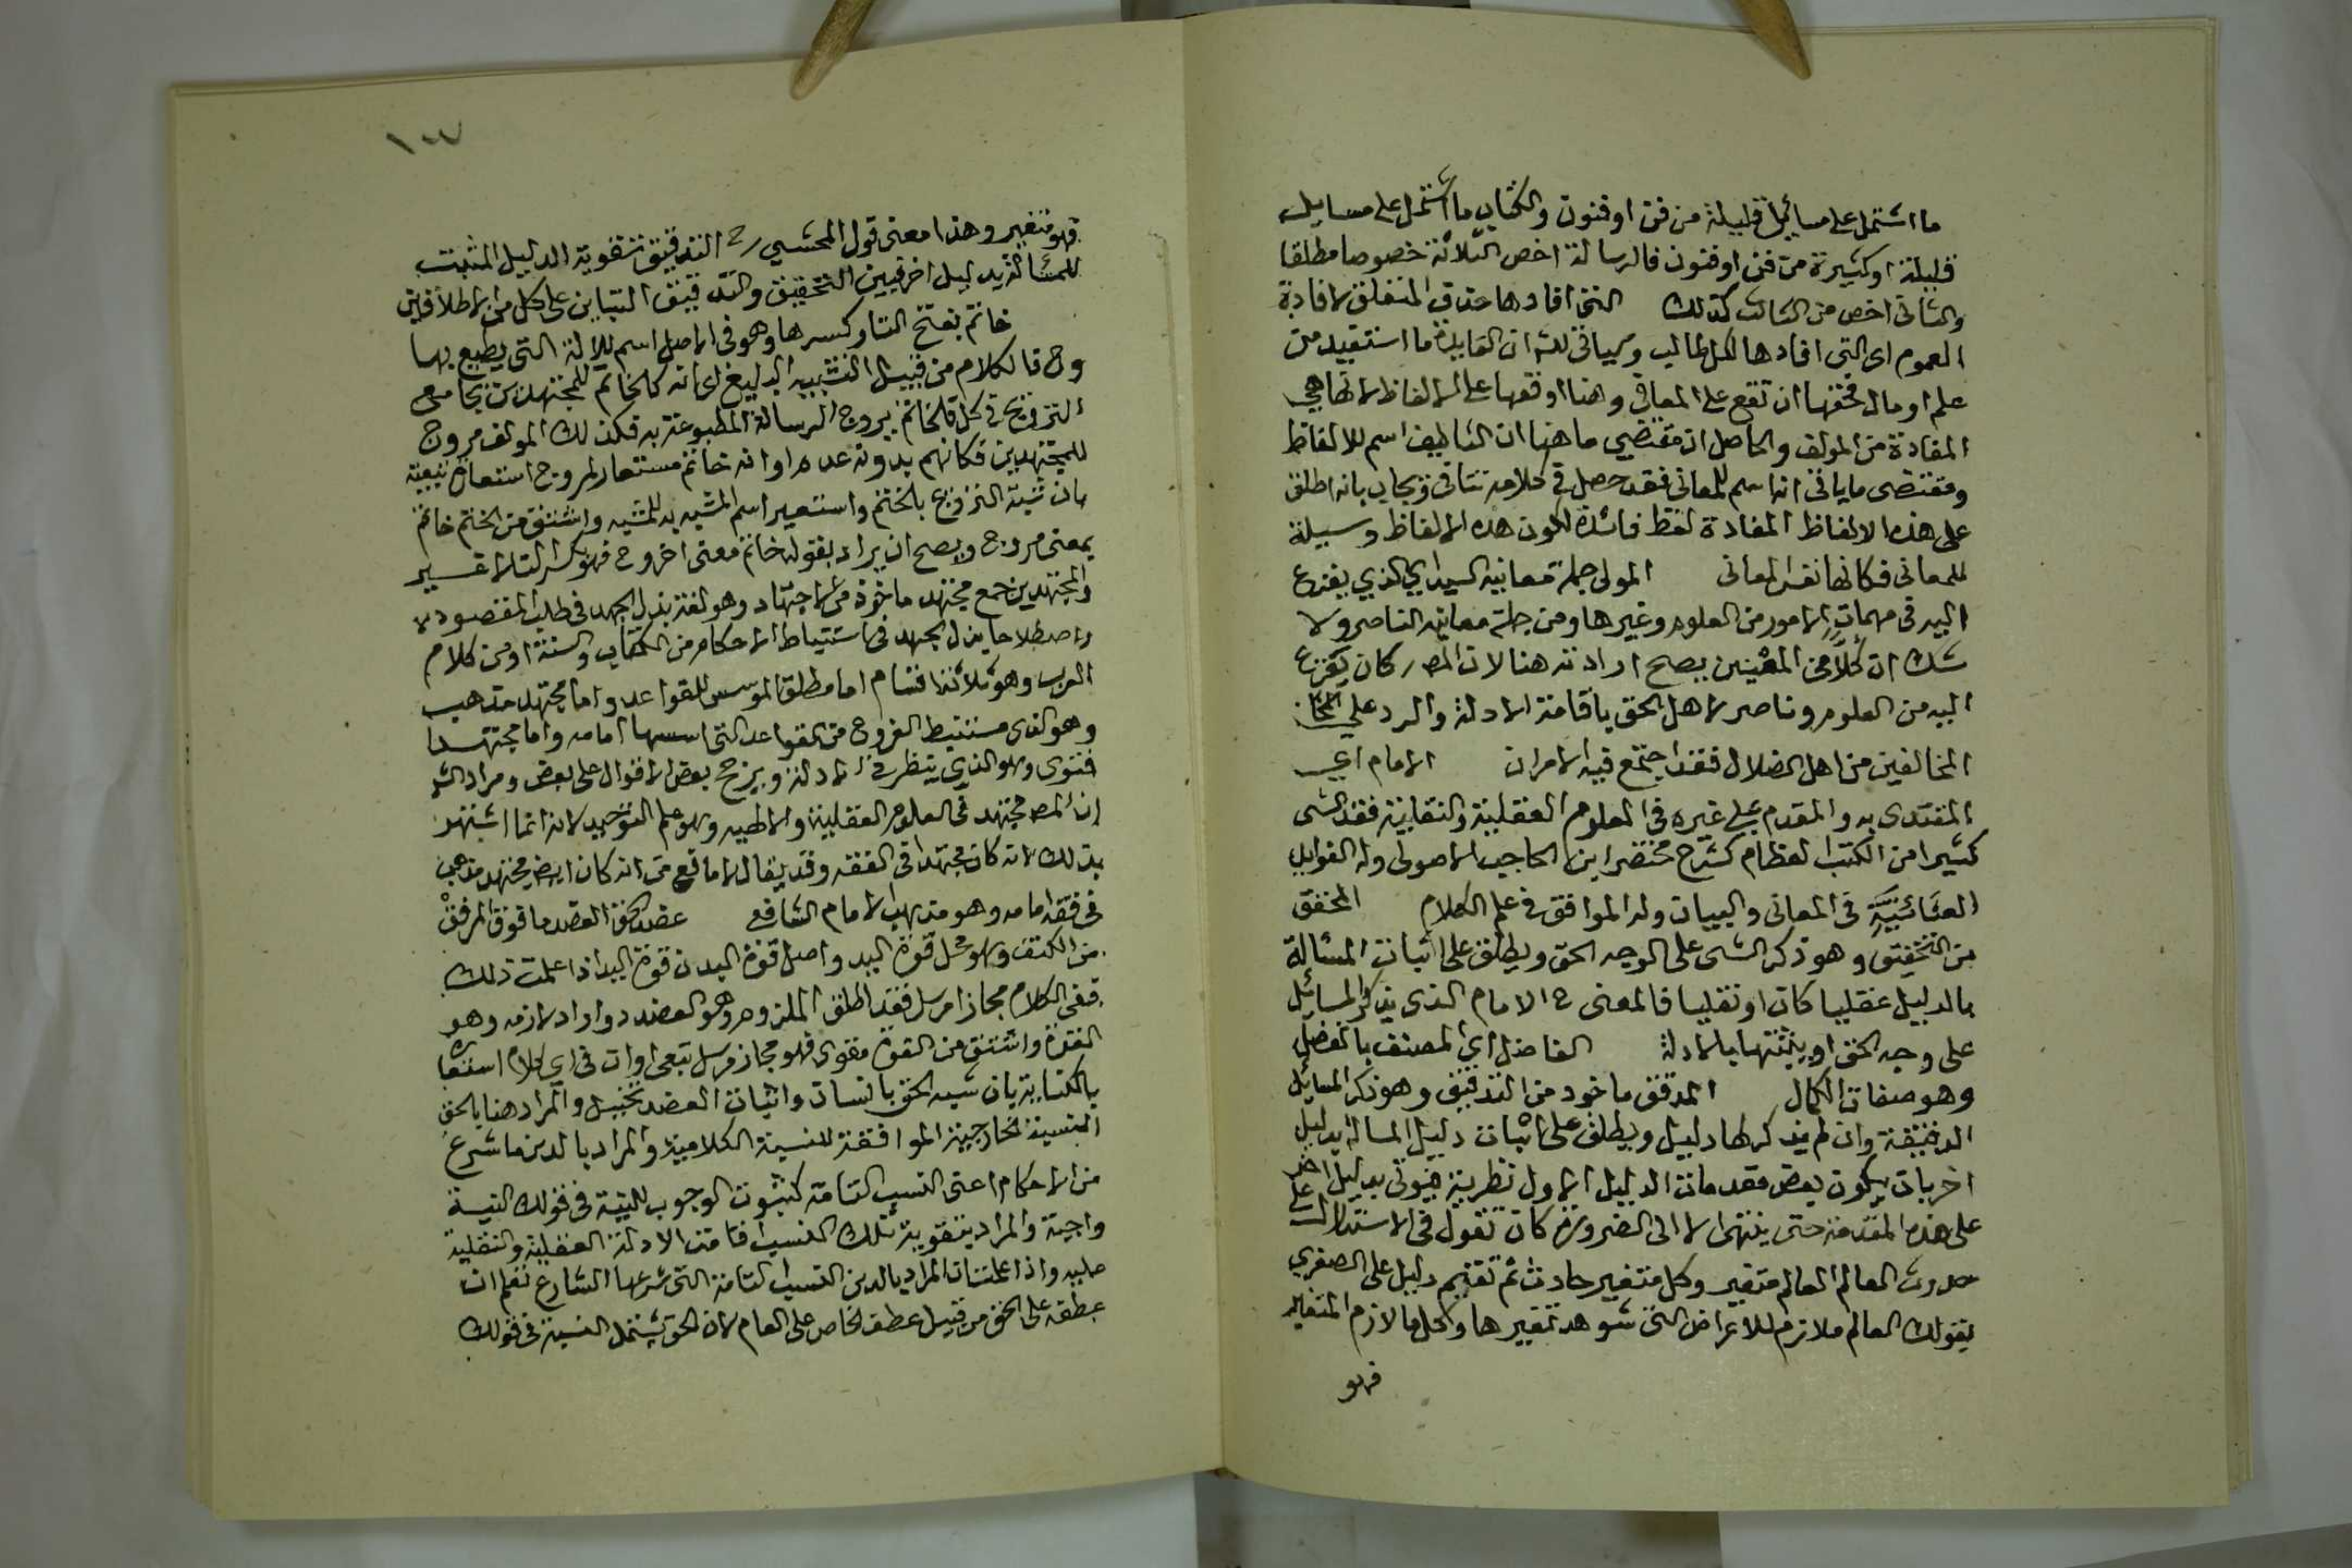 ما اشتمل على مسائل قليلة من فن او فنون والكتاب ما اشتمل على مسايل
قليلة او كثيرة من فن او فنون فالرسالة اخص الثلاثة خصوصا مطلقا
والثانى اخص من الثالث كذلك التى افادها حذف المتعلق لافادة
العموم اى التى افادها لكل طالب وسياتى للش ان الفايدة ما استفيد من
علم او مال فحقها ان تقع على المعانى وهنا اوقعها على الالفاظ لانها هي
المفادة من المولف والحاصل ان مقتضي ما هنا ان التاليف اسم للالفاظ
ومقتضى ما ياتى انه اسم للمعانى فقد حصل في كلامه تنافى ويجاب بانه اطلق
على هذه الالفاظ المفادة لفظ فائدة لكون هذه الالفاظ وسيلة
للمعانى فكانها نفس المعانى المولى جملة معانيه السيد اي الذي يفزع
اليه في مهمات الامور من العلوم وغيرها ومن جملة معانيه الناصر ولا
شك ان كلا من المعنيين يصح ارادته هنا لان المص كان يفزع
اليه من العلوم وناصر لاهل الحق باقامة الادلة والرد على
المخالفين من اهل الضلال فقد اجتمع فيه الامران الامام اي
المقتدى به والمقدم على غيره في العلوم العقلية والنقلية فقد
كثيرا من الكتب العظام كشرح مختصر ابن الحاجب الاصولى وله الفوايد
الغياثية في المعانى والبيان وله المواقف في علم الكلام المحقق
من التحقيق وهو ذكر الشى على الوجه الحق ويطلق على اثبات المسئالة
بالدليل عقليا كان او نقليا فالمعنى ح الامام الذى يذكر المسائل
على وجه الحق او يثبتها بالادلة الفاضل اي المصنف بالفضل
وهو صفات الكمال المدقق ماخوذ من التدقيق وهو ذكر المسايل
الدقيقة وان لم يذكر لها دليل ويطلق على اثبات دليل المسالة بدليل
اخر بان يكون بعض مقدمات الدليل الاول نظرية فيوتى بدليل اخر
على هذه المقدمة حتى ينتهى الامر الى الضرورة كان تقول في الاستدلال على
حدوث العالم العالم متغير وكل متغير حادث ثم تقيم دليل على الصغري
بقولك العالم ملازم للاعراض التى شوهد تغيرها وكل ما لازم المتغاير
فهو
١٠٧
فهو متغير وهذا معنى قول المحشي رح التدقيق تقوية الدليل المثبت
للمسئالة بدليل اخر فبين التحقيق والتدقيق التباين على كل من الاطلاقين
خاتم بفتح التا وكسرها وهو في الاصل اسم للالة التى يطبع بها
وح فالكلام من قبيل التشبيه البليغ اى انه كالخاتم للمجتهدين بجامع
الترويج في كل فالخاتم يروج الرسالة المطبوعة به فكذلك المولف مروج
للمجتهدين فكانهم بدونه عدم او انه خاتم مستعار لمروج استعارة تبعية
بان شبه الترويج بالختم واستعير اسم المشبه به للمشبه واشتق من الختم خاتم
بمعنى مروج ويصح ان يراد بقوله خاتم معنى اخر وح فهو بكسر التا لا غير
والمجتهدين جمع مجتهد ماخوذ من الاجتهاد وهو لغة بذل الجهد في طلب المقصود
واصطلاحا بذل الجهد في استنباط الاحكام من الكتاب والسنة او من كلام
العرب وهو ثلاثة اقسام اما مطلق الموسس للقواعد واما مجتهد مذهب
وهو الذى مستنبط الفروع من القواعد التى اسسها امامه واما مجتهد
فتوى وهو الذي ينظر في الادلة ويرجح بعض الاقوال على بعض ومراد الش
ان المص مجتهد في العلوم العقلية والالهيه وهو علم التوحيد لانه انما اشتهر
بذلك لانه كان مجتهدا في الفقه وقد يقال لا مانع من انه كان ايضا مجتهد مذهب
في فقه امامه وهو مذهب الامام الشافعى عضد الحق العضد ما فوق المرفق
من الكتف وهو محل قوة اليد واصل قوة البدن قوة اليد اذا علمت ذلك
ففي الكلام مجازا مرسل فقد اطلق الملزوم وهو العضد واراد لازمه وهو
القوة واشتق من القوة مقوى فهو مجاز مرسل تبعى او ان في اى كلام استعارة
بالكناية بان شبه الحق بانسان واثبات العضد تخييل والمراد هنا بالحق
النسبة الخارجية الموافقة للنسبة الكلامية والمراد بالدين ما شرع
من الاحكام اعنى النسب التامة كثبوت الوجوب للنية في قولك النية
واجبة والمراد بتقوية تلك النسب اقامة الادلة العقلية والنقلية
عليه واذا علمت ان المراد بالدين النسب التامة التى شرعها الشارع تعلم ان
عطفه على الحق من قبيل عطف الخاص على العام لان الحق يشتمل النسبة في قولك